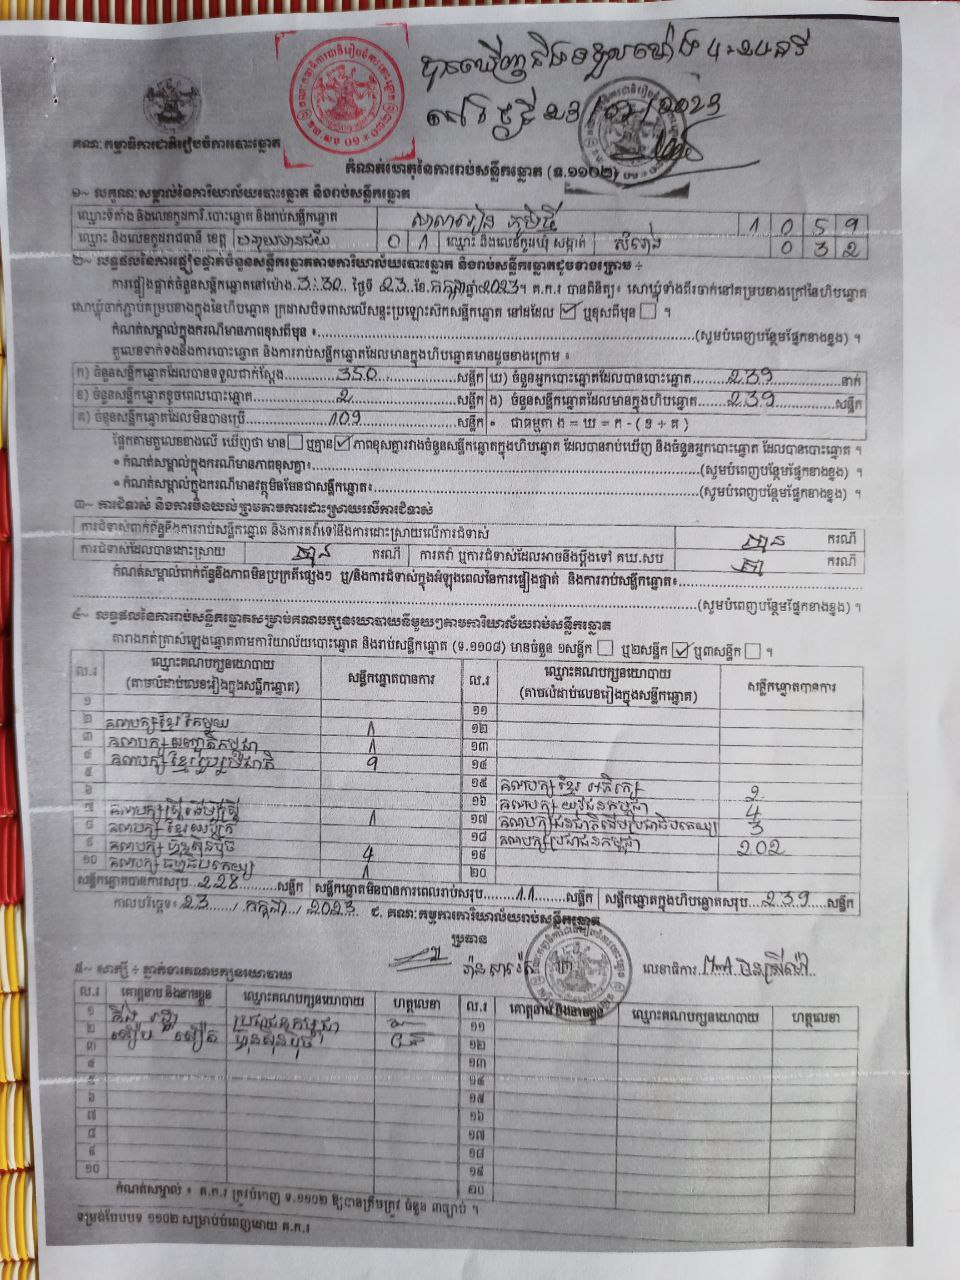 បានឃើញនិងទទួលម៉ោង ៤:២៤នាទី
នៅថ្ងៃទី ២៣/០៧/២០២៣
គណៈកម្មាធិការជាតិរៀបចំការបោះឆ្នោត
កំណត់ហេតុនៃការរាប់សន្លឹកឆ្នោត (ទ.១១០២)
១~ លក្ខណៈសម្គាល់នៃការិយាល័យបោះឆ្នោត និងរាប់សន្លឹកឆ្នោត
ឈ្មោះទីតាំង និងលេខកូដការិ.បោះឆ្នោត និងរាប់សន្លឹកឆ្នោត សាលារៀន ភូមិថ្មី 1 0 5 9
ឈ្មោះ និងលេខកូដរាជធានី ខេត្ត បន្ទាយមានជ័យ 0 1 ឈ្មោះ និងលេខកូដឃុំ សង្កាត់ 0 3 2
២~ លទ្ធផលនៃការផ្ទៀងផ្ទាត់ចំនួនសន្លឹកឆ្នោតតាមការិយាល័យបោះឆ្នោត និងរាប់សន្លឹកឆ្នោតដូចខាងក្រោម ÷
ការផ្ទៀងផ្ទាត់ចំនួនសន្លឹកឆ្នោតនៅម៉ោង 3:30 ថ្ងៃទី 23 ខែ កក្កដា ឆ្នាំ 2023។ គ.ក.រ បានពិនិត្យ៖ សោឃ្លុំទាំងពីរចាក់នៅគម្របខាងក្រៅនៃហិបឆ្នោត
សោឃ្លុំចាក់ភ្ជាប់គម្របខាងក្នុងនៃហិបឆ្នោត ក្រដាសបិទពាសលើសន្ទះប្រឡោះស៊កសន្លឹកឆ្នោត នៅដដែល ☑ ឬខុសពីមុន ☐ ។
កំណត់សម្គាល់ក្នុងករណីមានភាពខុសពីមុន ៖ (សូមបំពេញបន្ថែមផ្នែកខាងខ្នង) ។
តួលេខទាក់ទងនឹងការបោះឆ្នោត និងការរាប់សន្លឹកឆ្នោតដែលមានក្នុងហិបឆ្នោតមានដូចខាងក្រោម ៖
ក) ចំនួនសន្លឹកឆ្នោតដែលបានទទួលជាក់ស្តែង 350 សន្លឹក ឃ) ចំនួនអ្នកបោះឆ្នោតដែលបានបោះឆ្នោត 239 នាក់
ខ) ចំនួនសន្លឹកឆ្នោតខូចពេលបោះឆ្នោត 2 សន្លឹក ង) ចំនួនសន្លឹកឆ្នោតដែលមានក្នុងហិបឆ្នោត 239 សន្លឹក
គ) ចំនួនសន្លឹកឆ្នោតដែលមិនបានប្រើ 109 សន្លឹក • ជាធម្មតា ង = ឃ = ក - ( ខ + គ )
ផ្អែកតាមតួលេខខាងលើ ឃើញថា មាន ☐ ឬគ្មាន ☑ ភាពខុសគ្នារវាងចំនួនសន្លឹកឆ្នោតក្នុងហិបឆ្នោត ដែលបានរាប់ឃើញ និងចំនួនអ្នកបោះឆ្នោត ដែលបានបោះឆ្នោត ។
• កំណត់សម្គាល់ក្នុងករណីមានភាពខុសគ្នា៖ (សូមបំពេញបន្ថែមផ្នែកខាងខ្នង) ។
• កំណត់សម្គាល់ក្នុងករណីមានវត្ថុមិនមែនជាសន្លឹកឆ្នោត៖ (សូមបំពេញបន្ថែមផ្នែកខាងខ្នង) ។
៣~ ការជំទាស់ និងការមិនយល់ព្រមតាមការដោះស្រាយលើការជំទាស់
ការជំទាស់ពាក់ព័ន្ធនឹងការរាប់សន្លឹកឆ្នោត និងការតវ៉ាទៅនឹងការដោះស្រាយលើការជំទាស់ គ្មាន ករណី
ការជំទាស់ដែលបានដោះស្រាយ គ្មាន ករណី ការតវ៉ា ឬការជំទាស់ដែលអាចនឹងប្តឹងទៅ គឃ.សប ករណី
កំណត់សម្គាល់ពាក់ព័ន្ធនឹងភាពមិនប្រក្រតីផ្សេងៗ ឬ/និងការជំទាស់ក្នុងអំឡុងពេលនៃការផ្ទៀងផ្ទាត់ និងការរាប់សន្លឹកឆ្នោត៖
(សូមបំពេញបន្ថែមផ្នែកខាងខ្នង) ។
៤~ លទ្ធផលនៃការរាប់សន្លឹកឆ្នោតសម្រាប់គណបក្សនយោបាយនីមួយៗតាមការិយាល័យរាប់សន្លឹកឆ្នោត
តារាងកត់ត្រាសំឡេងឆ្នោតតាមការិយាល័យបោះឆ្នោត និងរាប់សន្លឹកឆ្នោត (ទ.១១០៨) មានចំនួន ១សន្លឹក ☐ ឬ២សន្លឹក ☑ ឬ៣សន្លឹក ☐ ។
ល.រ ឈ្មោះគណបក្សនយោបាយ (តាមលំដាប់លេខរៀងក្នុងសន្លឹកឆ្នោត) សន្លឹកឆ្នោតបានការ ល.រ ឈ្មោះគណបក្សនយោបាយ (តាមលំដាប់លេខរៀងក្នុងសន្លឹកឆ្នោត) សន្លឹកឆ្នោតបានការ
១ ១១
២ គណបក្សខ្មែរតែមួយ 1 ១២
៣ គណបក្សសញ្ជាតិកម្ពុជា 1 ១៣
៤ គណបក្សខ្មែររួបរួមជាតិ 9 ១៤
៥ ១៥ គណបក្សខ្មែរអភិរក្ស 2
៦ ១៦ គណបក្សយុវជនកម្ពុជា 4
៧ គណបក្សស្រ្តីដើម្បីស្រ្តី 1 ១៧ គណបក្សជនជាតិដើមប្រជាធិបតេយ្យ 3
៨ ១៨ គណបក្សប្រជាជនកម្ពុជា 202
៩ គណបក្សហ៊្វុនស៊ិនប៉ិច 4 ១៩
១០ គណបក្សធម្មាធិបតេយ្យ 1 ២០
សន្លឹកឆ្នោតបានការសរុប 228 សន្លឹក សន្លឹកឆ្នោតមិនបានការពេលរាប់សរុប 11 សន្លឹក សន្លឹកឆ្នោតក្នុងហិបឆ្នោតសរុប 239 សន្លឹក
កាលបរិច្ឆេទ៖ 23 / កក្កដា / 2023 ជ. គណៈកម្មការការិយាល័យរាប់សន្លឹកឆ្នោត
ប្រធាន
លេខាធិការ
៥~ សាក្សី ÷ ភ្នាក់ងារគណបក្សនយោបាយ
ល.រ គោត្តនាម និងនាមខ្លួន ឈ្មោះគណបក្សនយោបាយ ហត្ថលេខា ល.រ គោត្តនាម និងនាមខ្លួន ឈ្មោះគណបក្សនយោបាយ ហត្ថលេខា
១ ប្រជាជនកម្ពុជា ១១
២ ហ៊្វុនស៊ិនប៉ិច ១២
៣ ១៣
៤ ១៤
៥ ១៥
៦ ១៦
៧ ១៧
៨ ១៨
៩ ១៩
១០ ២០
កំណត់សម្គាល់ ៖ គ.ក.រ ត្រូវបំពេញ ទ.១១០២ ឱ្យបានត្រឹមត្រូវ ចំនួន ៣ច្បាប់ ។
ទម្រង់បែបបទ ១១០២ សម្រាប់បំពេញដោយ គ.ក.រ